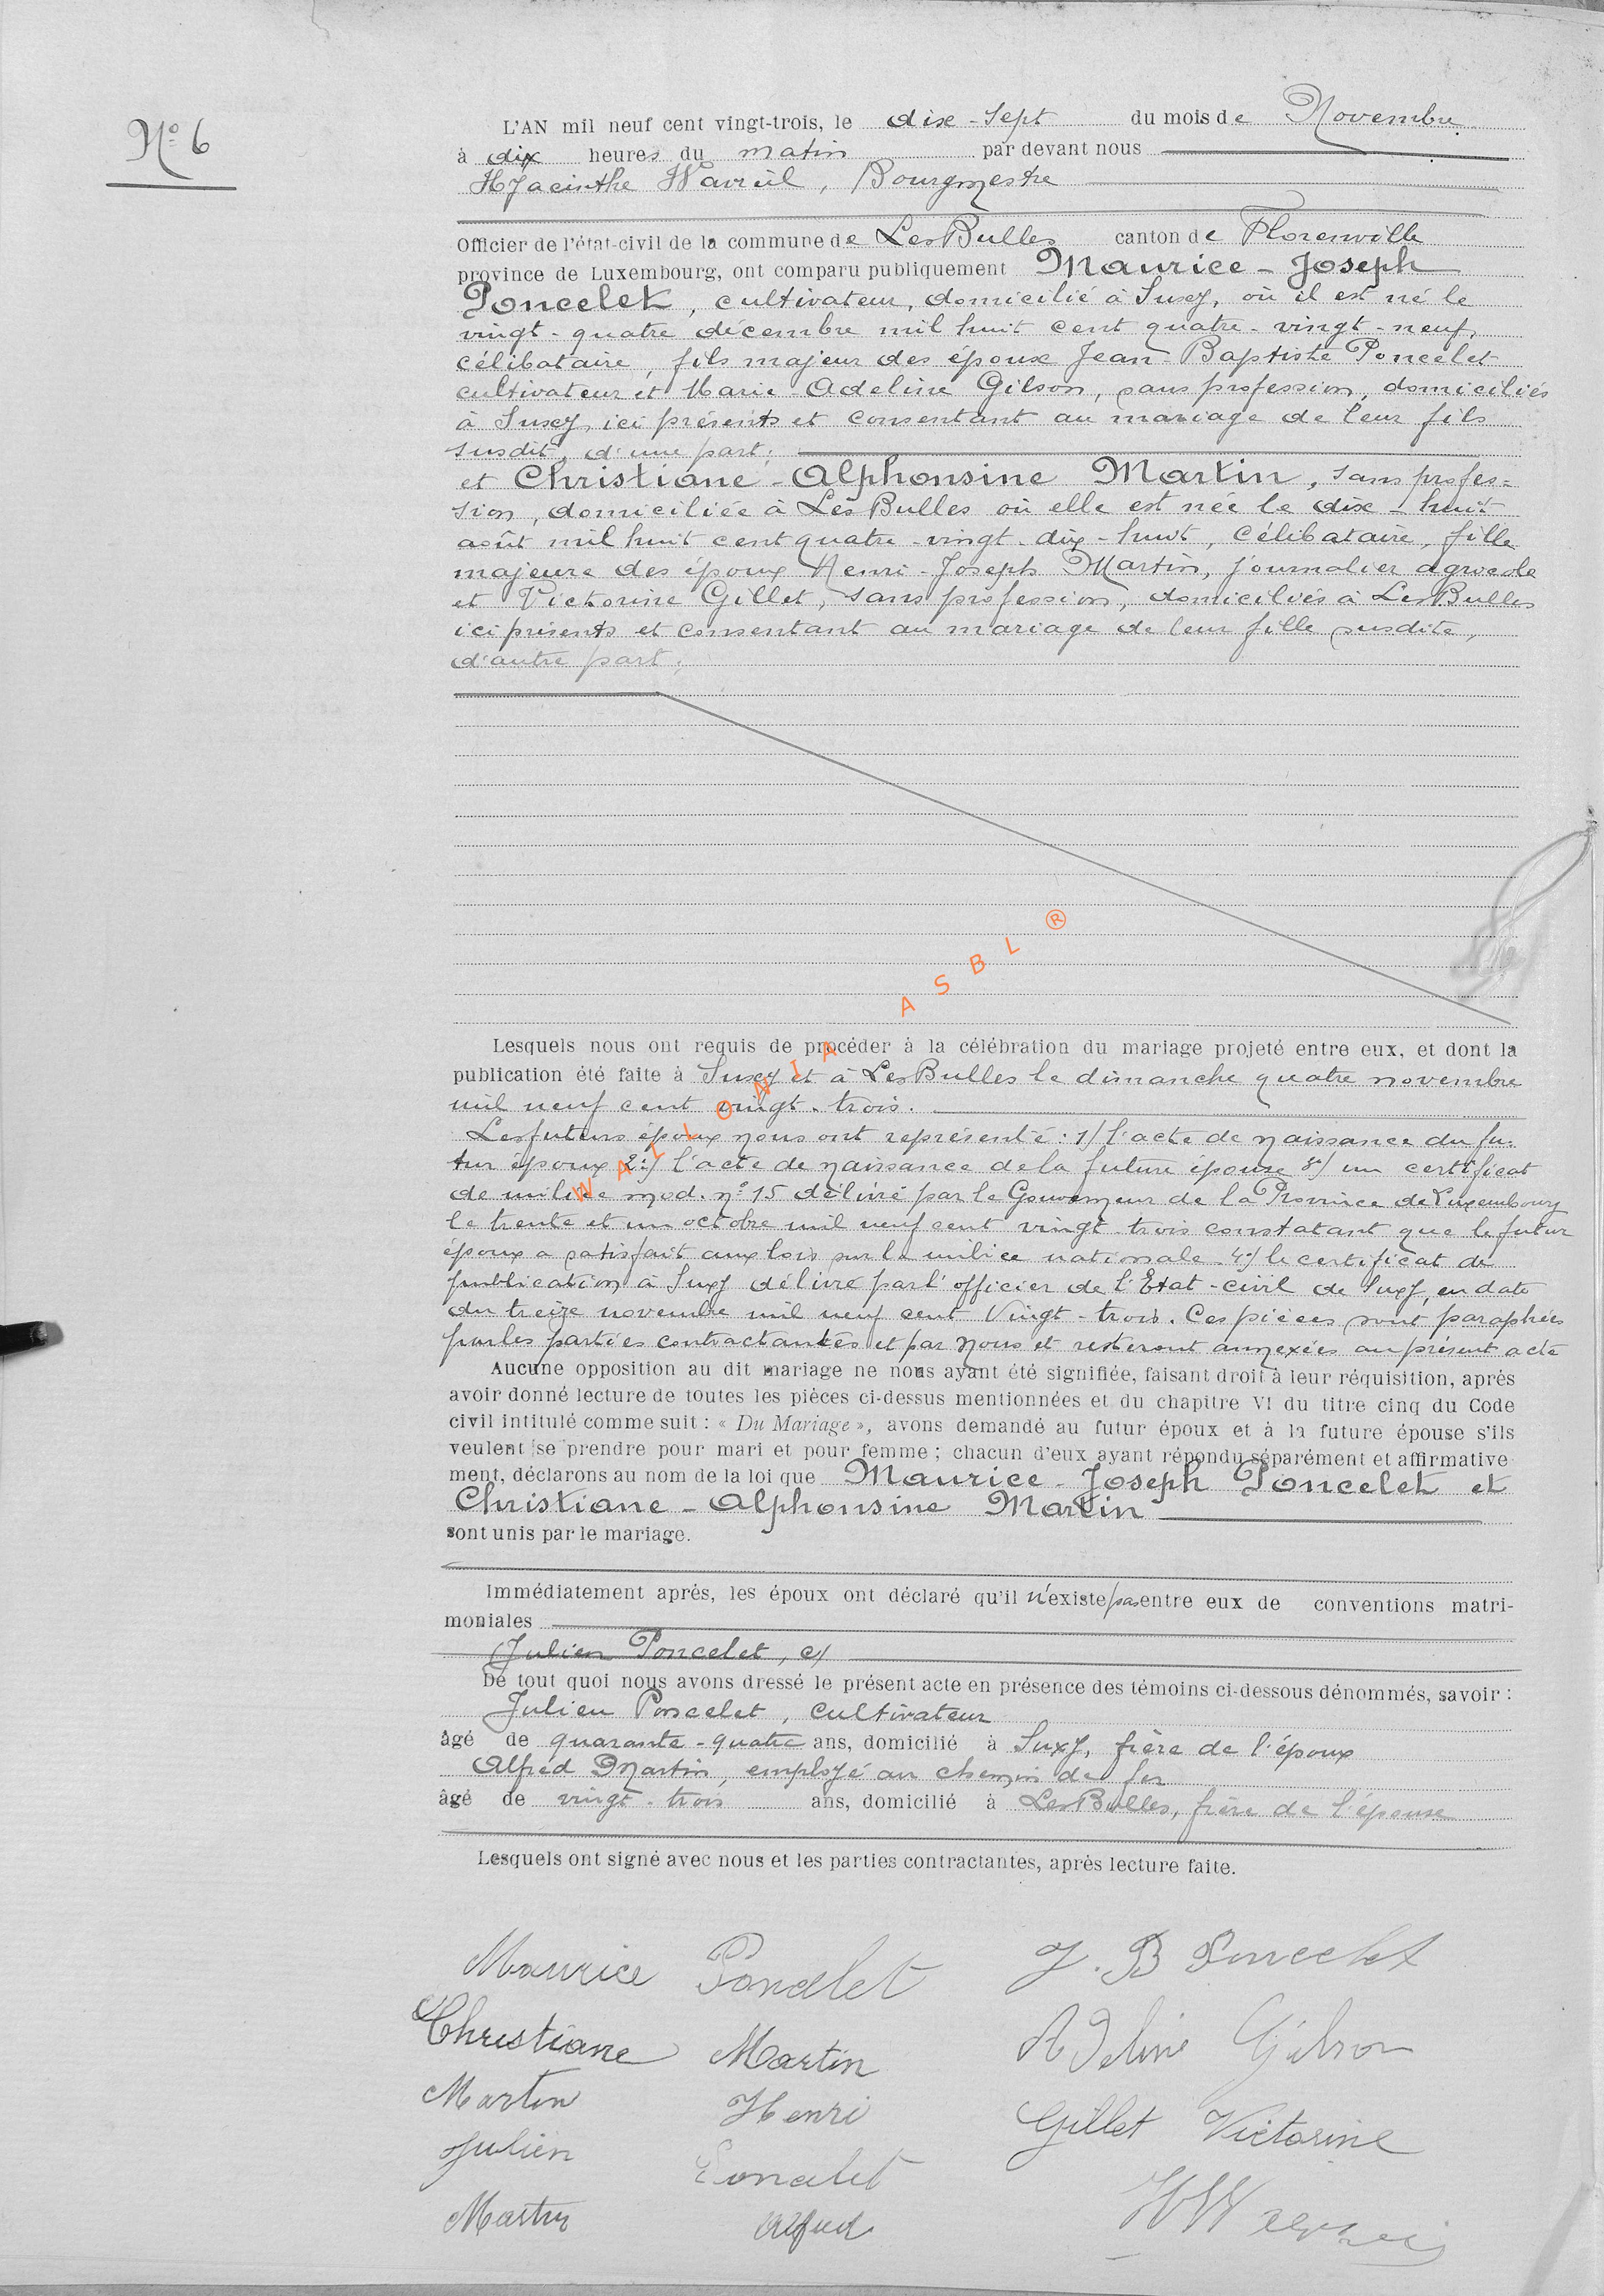 Nº 6
L'AN mil neuf cent vingt-trois, le dix-sept du mois de Novembre
à dix heures du matin par devant nous
Hyacinthe Wavreil, Bourgmestre
Officier de l'état-civil de la commune de Les Bulles canton de Florenville
province de Luxembourg, ont comparu publiquement Maurice-Joseph
Poncelet, cultivateur, domicilié à Suxy, où il est né le
vingt-quatre décembre mil huit cent quatre-vingt-neuf,
célibataire, fils majeur des époux Jean-Baptiste Poncelet
cultivateur et Marie-Adeline Gilson, sans profession, domiciliés
à Suxy, ici présents et consentant au mariage de leur fils
susdit, d'une part;
et Christiane-Alphonsine Martin, sans profes=
sion, domiciliée à Les Bulles où elle est née le dix-huit
août mil huit cent quatre-vingt-dix-huit, célibataire, fille
majeure des époux Henri-Joseph Martin, journalier agricole
et Victorine Gillet, sans profession, domiciliés à Les Bulles
ici présents et consentant au mariage de leur fille susdite,
d'autre part;
Lesquels nous ont requis de procéder à la célébration du mariage projeté entre eux, et dont la
publication été faite à Suxy et à Les Bulles le dimanche quatre novembre
mil neuf cent vingt-trois.
Les futurs époux nous ont représenté: 1/ l'acte de naissance du fu-
tur époux 2º/ l'acte de naissance de la future épouse 3º/ un certificat
de milice mod. nº 15 délivré par le Gouverneur de la Province de Luxembourg
le trente et un octobre mil neuf cent vingt-trois constatant que le futur
époux a satisfait aux lois sur la milice nationale. 4º/ le certificat de
publication à Suxy délivré par l'officier de l'Etat-civil de Suxy, en date
du treize novembre mil neuf cent Vingt-trois. Ces pièces sont paraphées
par les parties contractantes et par Nous et resteront annexées au présent acte
Aucune opposition au dit mariage ne nous ayant été signifiée, faisant droit à leur réquisition, après
avoir donné lecture de toutes les pièces ci-dessus mentionnées et du chapitre VI du titre cinq du Code
civil intitulé comme suit : « Du Mariage », avons demandé au futur époux et à la future épouse s'ils
veulent se prendre pour mari et pour femme ; chacun d'eux ayant répondu séparément et affirmative
ment, déclarons au nom de la loi que Maurice-Joseph Poncelet et
Christiane-Alphonsine Martin
sont unis par le mariage.
Immédiatement après, les époux ont déclaré qu'il n'existe pas entre eux de conventions matri-
moniales
(Julien Poncelet, c)
De tout quoi nous avons dressé le présent acte en présence des témoins ci-dessous dénommés, savoir :
Julien Poncelet, cultivateur
âgé de quarante-quatre ans, domicilié à Suxy, frère de l'époux
Alfred Martin, employé au chemin de fer
âgé de vingt-trois ans, domicilié à Les Bulles, frère de l'épouse
Lesquels ont signé avec nous et les parties contractantes, après lecture faite.
Maurice Poncelet J. B Poncelet
Christiane Martin Adeline Gilson
Martin Henri Gillet Victorine
Julien Poncelet
Martin Alfred
WALLONIA ASBL ®